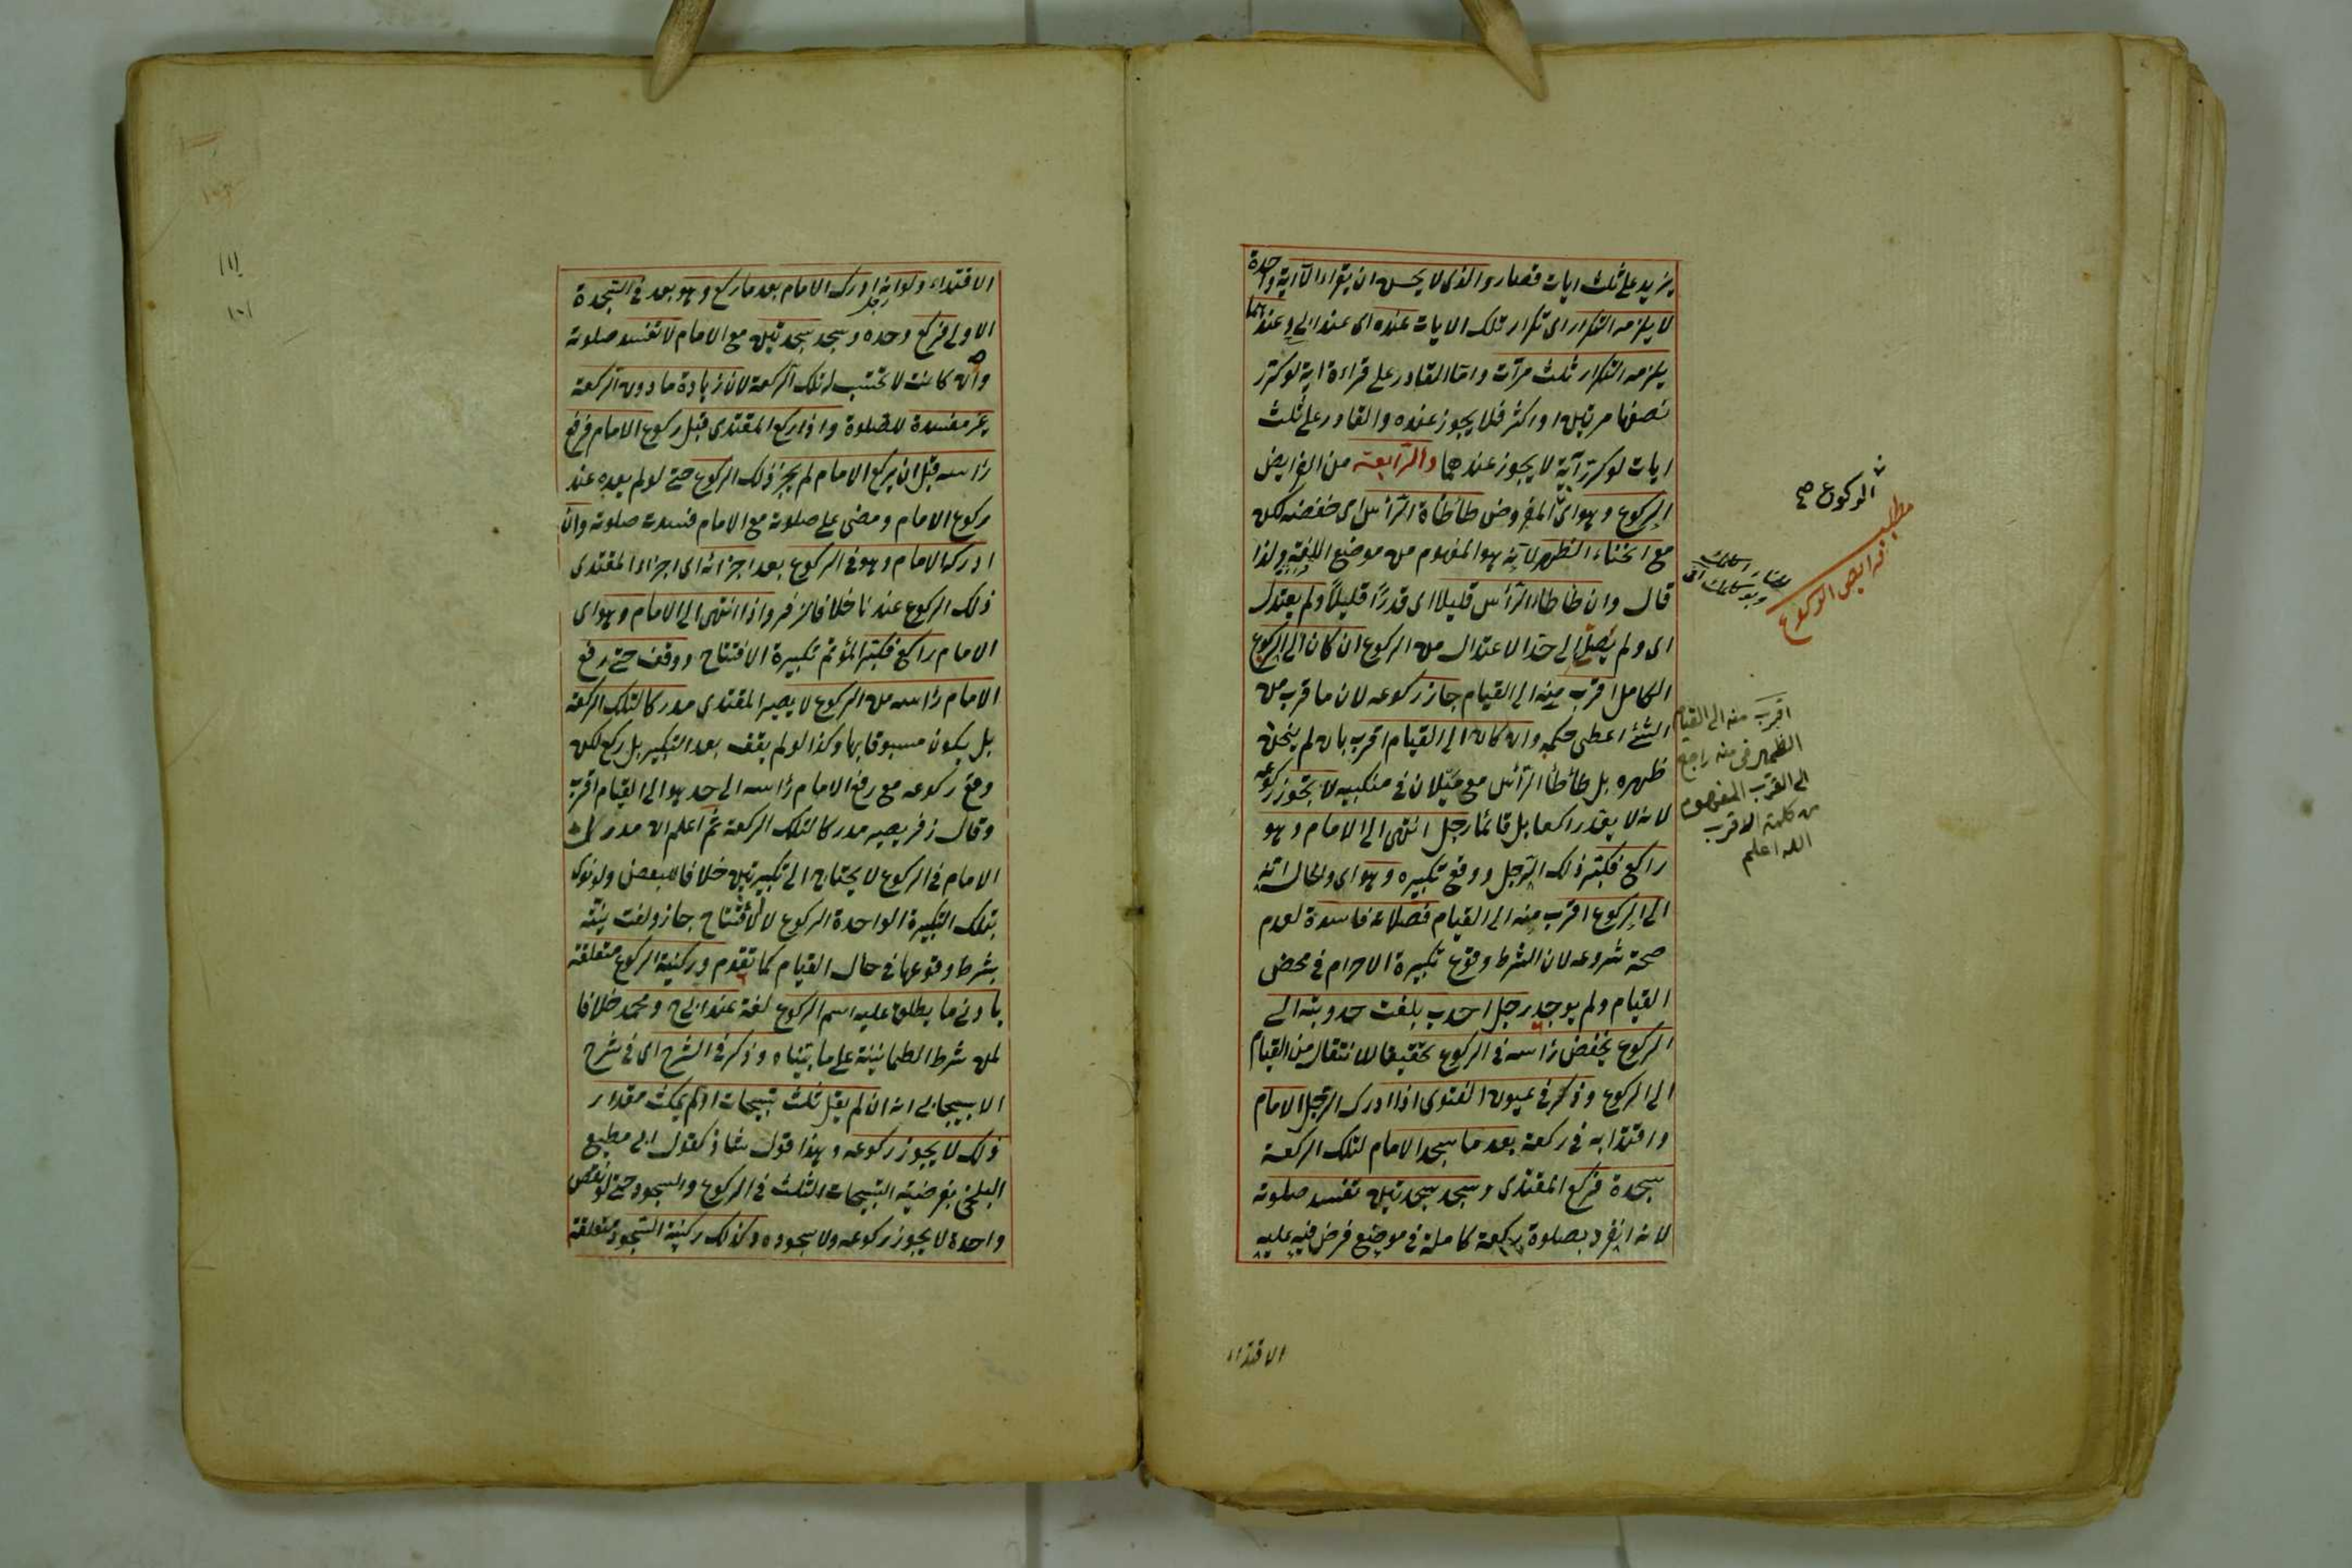 يزيد على ثلث ايات قصار والذى لا يحسن ان يقراء الا آية واحدة
لا يلزمه التكرار اى تكرار تلك الايات عنده اى عند ابى ح وعندهما
يلزمه التكرار ثلث مرآت واما القادر على قراءة اية لو كرر
نصفها مرتين او اكثر فلا يجوز عنده والقادر على ثلث
ايات لو كرر آية لا يجوز عندهما والرابعة من الفرايض
الركوع وهو اى المفروض طأطأة الرأس اى خفضه لكن
مع انحناء الظهر لانه هو المفهوم من موضع اللغة ولذا
قال وان طاطاء الرأس قليلا اى قدرًا قليلًا ولم يعتدل
اى ولم يصل الى حد الاعتدال من الركوع ان كان الى الركوع
الكامل اقرب منه الى القيام جاز ركوعه لان ما قرب من
الشئ اعطى حكمه وان كان الى القيام اقرب بان لم ينحن
ظهره بل طأطأ الرأس مع ميلان فى منكبيه لا يجوز ركوعه
لانه لا يعد راكعا بل قائما رجل انتهى الى الامام وهو
راكع فكبر ذلك الرجل ووقع تكبيره وهو اى والحال انه
الى الركوع اقرب منه الى القيام فصلاته فاسدة لعدم
صحة شروعه لان الشرط وقوع تكبيرة الاحرام فى محض
القيام ولم يوجد رجل احدب بلغت حدوبته الى
الركوع يخفض رأسه فى الركوع تحقيقا للانتقال من القيام
الى الركوع وذكر فى عيون الفتوى اذا ادرك الرجل الامام
واقتدا به فى ركعة بعد ما سجد الامام لتلك الركعة
سجدة فركع المقتدى وسجد سجدتين تفسد صلوته
لانه انفرد بصلوة ركعة كاملة فى موضع فرض فيه عليه
الاقتداء
الركوع صح
مطلب
فرايض الركوع
اقرب منه الى القيام
الظمير فى منه راجع
الى القرب المفهوم
من كلمة الاقرب
الله اعلم
الاقتداء ولو انه ادرك الامام بعد ما ركع وهو بعد فى السجدة
رجل
الاولى فركع وحده وسجد سجدتين مع الامام لا تفسد صلوته
وان كانت لا تحتسب له تلك الركعة لان زيادة ما دون الركعة
غير مفسدة للصلوة واذا ركع المقتدى قبل ركوع الامام فرفع
رأسه قبل ان يركع الامام لم يجز ذلك الركوع حتى لو لم يعده عند
ركوع الامام ومضى على صلوته مع الامام فسدت صلوته وان
ادركه الامام وهو فى الركوع بعد اجزائه اى اجزاء المقتدى
ذلك الركوع عندنا خلافا لزفر واذا انتهى الى الامام وهو اى
الامام راكع فكبر المؤتم تكبيرة الافتتاح ووقف حتى رفع
الامام رأسه من الركوع لا يصير المقتدى مدركا لتلك الركعة
بل يكون مسبوقا بها وكذا لو لم يقف بعد التكبير بل ركع لكن
وقع ركوعه مع رفع الامام رأسه الى حد هو الى القيام اقرب
وقال زفر يصير مدركا لتلك الركعة ثم اعلم ان مدرك
الامام فى الركوع لا يحتاج الى تكبيرتين خلافا للبعض ولو نوى
بتلك التكبيرة الواحدة الركوع لا الافتتاح جاز ولغت نيته
بشرط وقوعها فى حال القيام كما تقدم وركنية الركوع متعلقة
بادنى ما يطلق عليه اسم الركوع لغة عند ابى ح ومحمد خلافا
لمن شرط الطمانينة على ما بيناه وذكر فى الشرح اى فى شرح
الاسبيجابى انه ان لم يقل ثلث تسبيحات او لم يمكث مقدار
ذلك لا يجوز ركوعه وهذا قول شاذ كقول ابى مطيع
البلخى بفرضية التسبيحات الثلث فى الركوع والسجود حتى لو نقص
واحدة لا يجوز ركوعه ولا سجوده وكذلك ركنية السجود متعلقة
١١١
١٠١